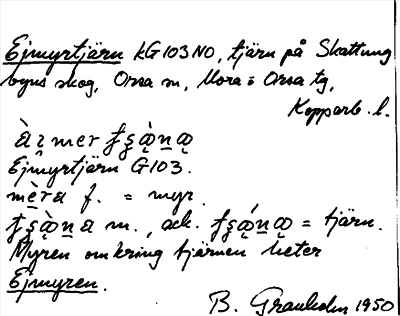 Ejmyrtjärn KG103NO, tjärn på Skattung
byns skog, Orsa sn, Mora o Orsa tg,
Kopparb. l.
Ejmyrtjärn G103.
f. = myr.
m., ack. = tjärn.
Myren omkring tjärnen heter
Ejmyren.
B. Granholm 1950